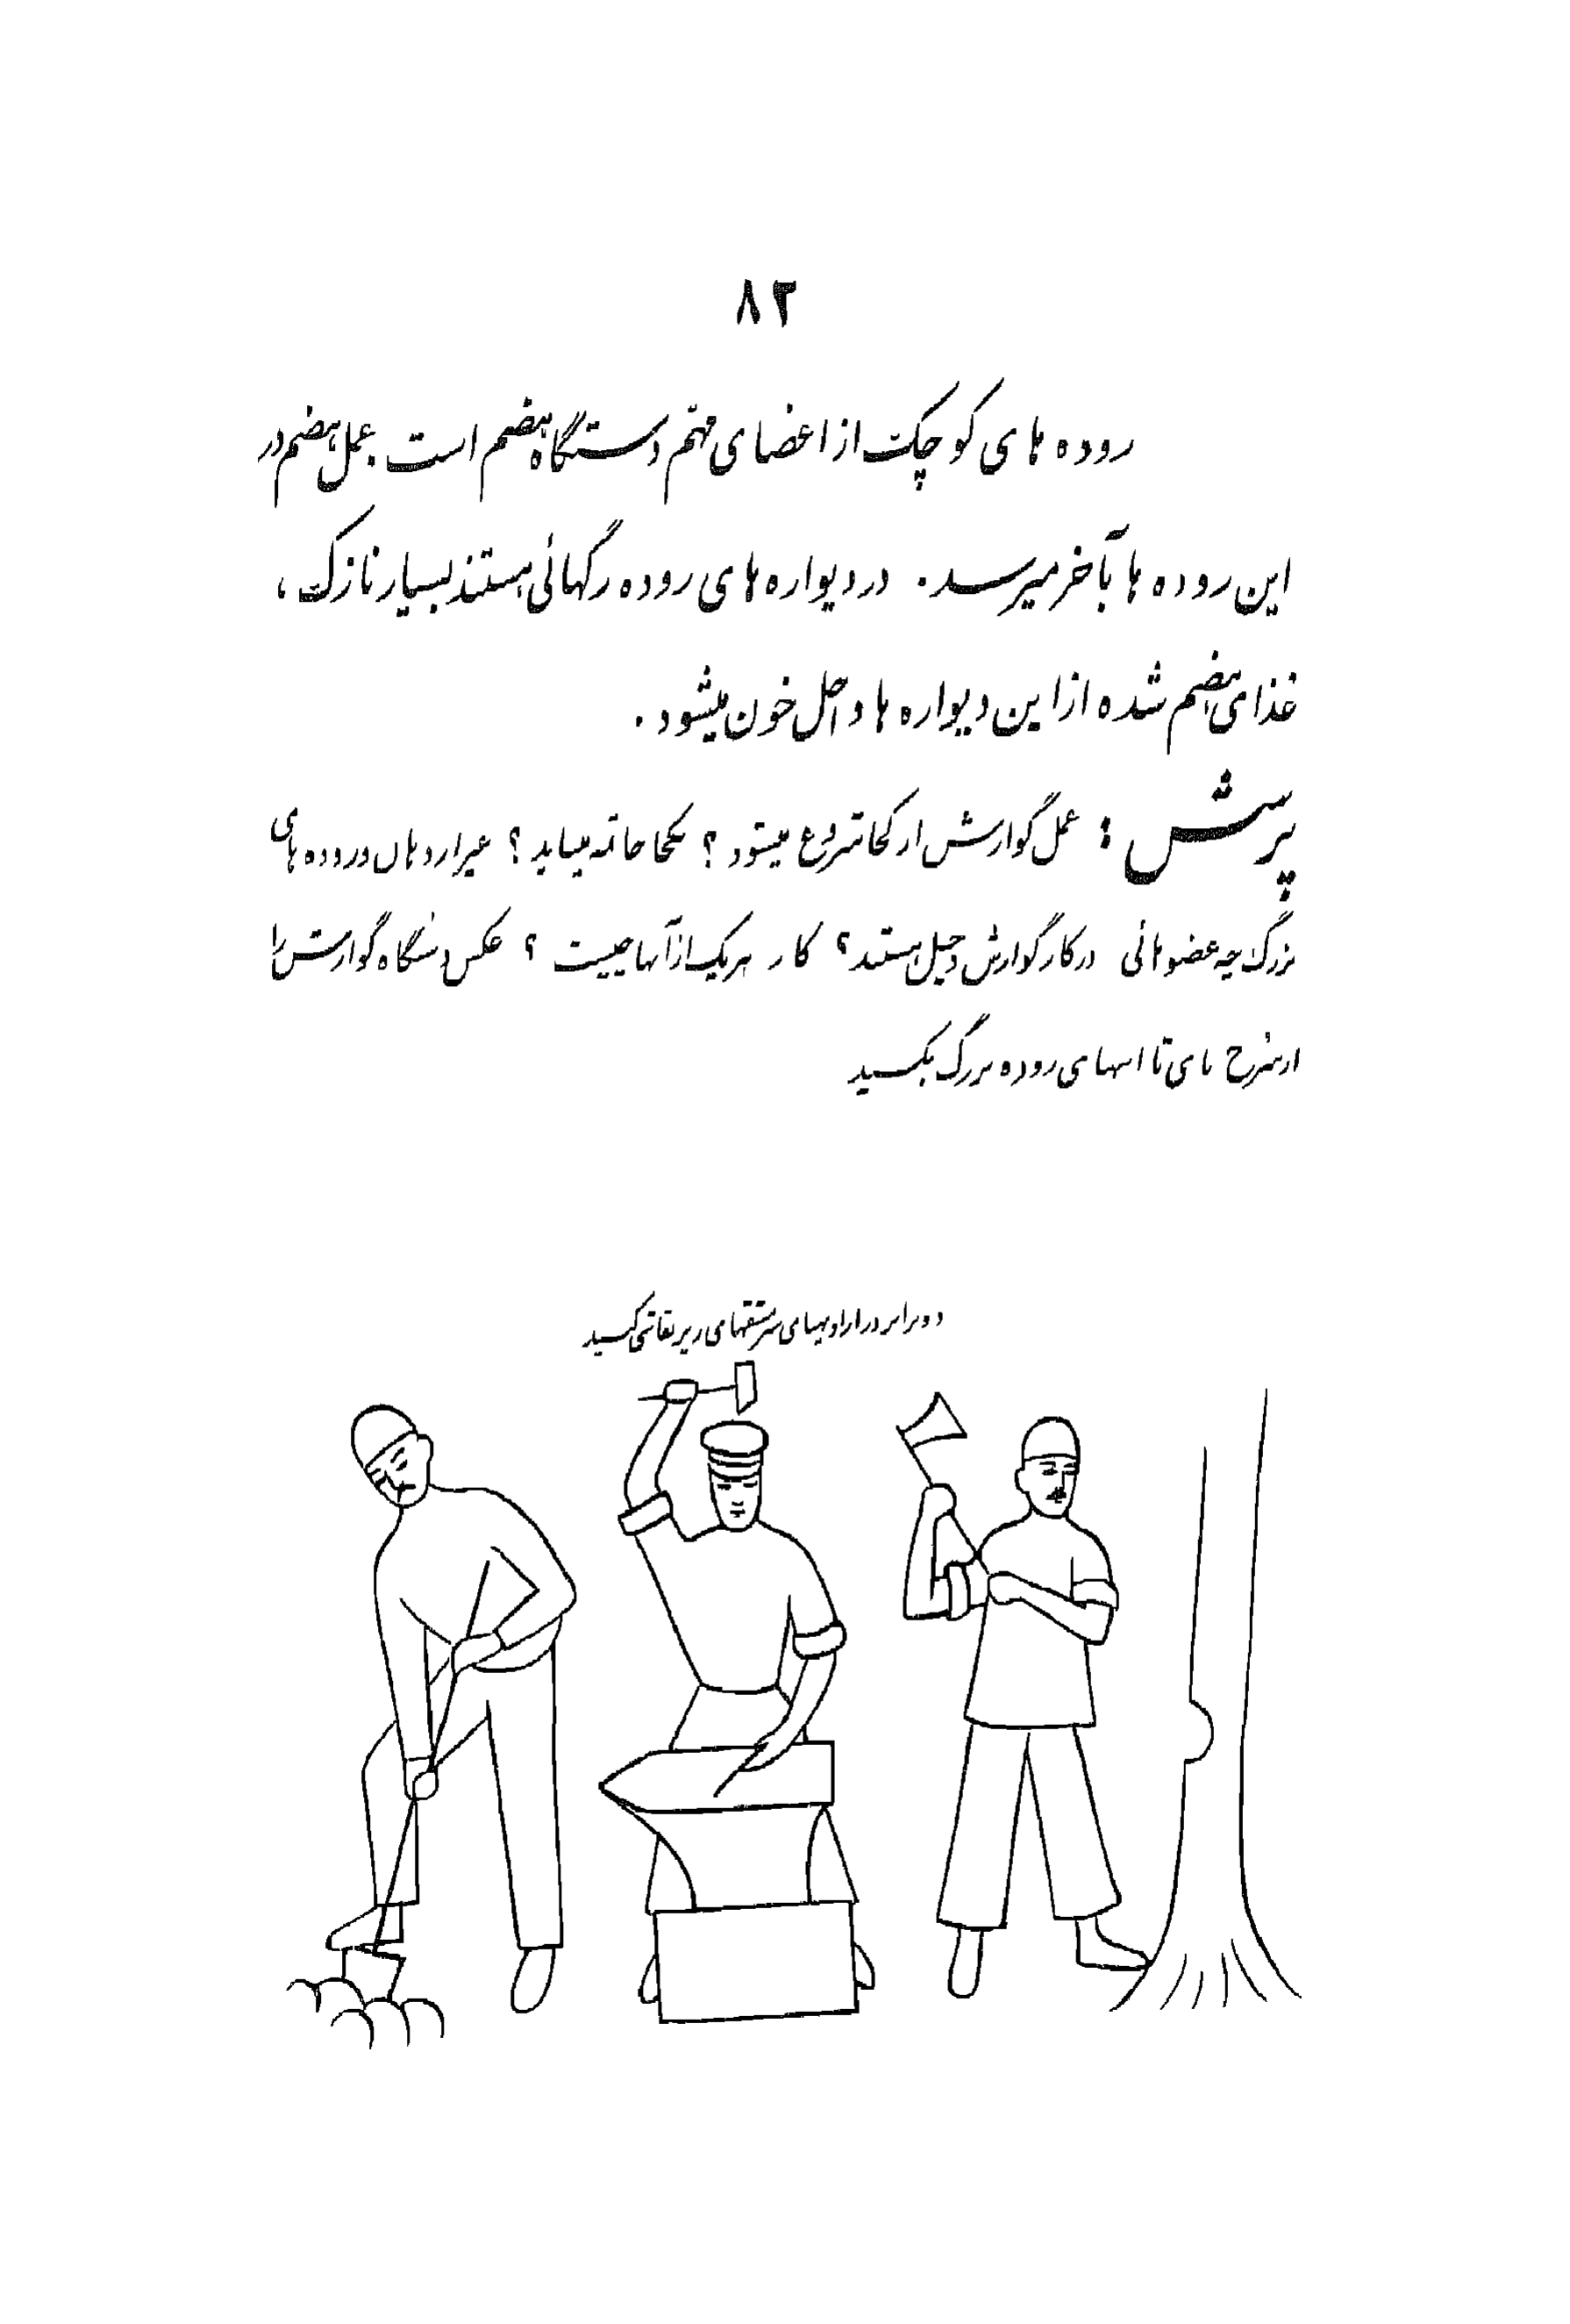 ۸۲
روده های کوچک از اعضای مهّم دستگاه هضم است . عمل هضم در
این روده ها بآخر میرسد . در دیواره های روده رگهائی هستند بسیار نازک ،
غذای هضم شده از این دیواره ها داخل خون میشود .
پرسش : عمل گوارش از کجا شروع میشود ؟ بکجا خاتمه مییابد ؟ غیر از دهان و روده های
بزرگ چه عضوهائی در کار گوارش دخیل هستند ؟ کار هر یک از آنها چیست ؟ عکس دستگاه گوارش را
از سرخ نای تا انتهای روده بزرگ بکشید
دو برابر در از اوبهای سرمشقهای زیر نقاشی کنید